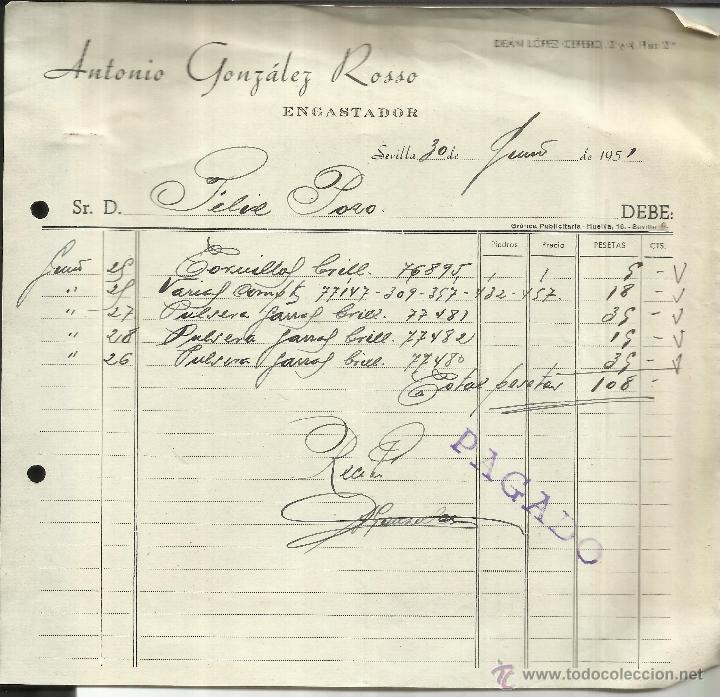 DEAN LÓPEZ CEPERO, 2 y 4, Piso 2º
Antonio González Rosso
ENGASTADOR
Sevilla 30 de Junio de 1951
Sr. D. Felix Pozo DEBE:
Gráfica Publicitaria - Huelva, 16. - Sevilla
Piedras Precio PESETAS CTS.
Junio 25 Tornillos brill. 76895 5 -
" 25 Varias 77147-309-357-432-457. 18 -
" 27 Pulsera garras brill. 77481 35 -
" 28 Pulsera garras brill. 77482 15 -
" 26 Pulsera garras brill. 77480 35 -
Total pesetas 108 -
Recibí
PAGADO
www.todocoleccion.net